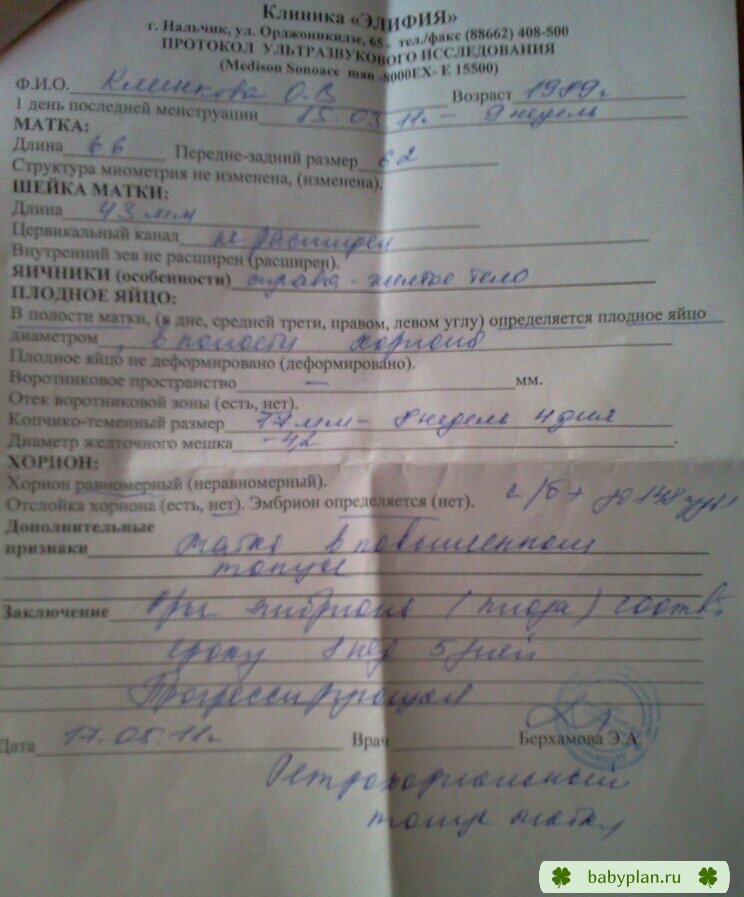 Клиника «ЭЛИФИЯ»
г. Нальчик, ул. Орджоникидзе, 65, тел./факс (88662) 408-500
ПРОТОКОЛ УЛЬТРАЗВУКОВОГО ИССЛЕДОВАНИЯ
(Medison Sonoace man -8000EX- E 15500)
Ф.И.О. О.В Возраст 1989г
1 день последней менструации 15.03.11г – 9 недель
МАТКА:
Длина 66 Передне-задний размер 62
Структура миометрия не изменена, (изменена).
ШЕЙКА МАТКИ:
Длина 43 мм
Цервикальный канал не расширен
Внутренний зев не расширен (расширен).
ЯИЧНИКИ (особенности) справа - желтое тело
ПЛОДНОЕ ЯЙЦО:
В полости матки, (в дне, средней трети, правом, левом углу) определяется плодное яйцо
диаметром , в полости хориона
Плодное яйцо не деформировано (деформировано).
Воротниковое пространство – мм.
Отек воротниковой зоны (есть, нет).
Копчико-теменный размер мм – 8 недель 4 дня
Диаметр желточного мешка - 4,2
ХОРИОН:
Хорион равномерный (неравномерный).
Отслойка хориона (есть, нет). Эмбрион определяется (нет). с/б + до 148 уд/
Дополнительные
признаки матка в повышенном
тонусе
Заключение эмбриона (плода) соотв.
сроку 8 нед 5 дней
Прогрессирующая
Дата 17.05.11г. Врач Берхамова Э.А.
Ретрохориальный
тонус матки
babyplan.ru